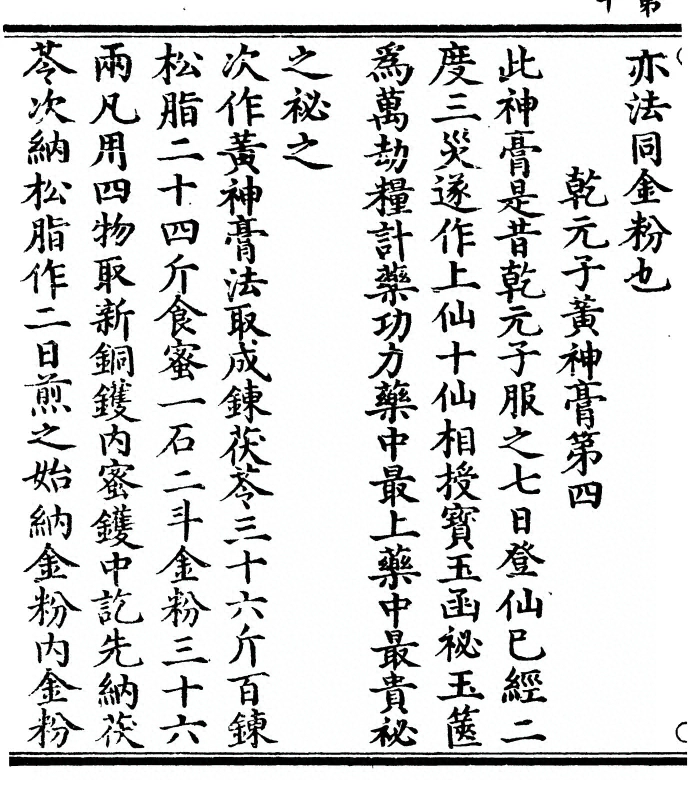 亦法同金粉也
乾元子黃神膏第四
此神膏是昔乾元子服之七日登仙已經二
度三災遂作上仙十仙相授寶玉函祕玉篋
為萬劫糧計藥功力藥中最上藥中最貴祕
之祕之
次作黃神膏法取成鍊茯苓三十六斤百鍊
松脂二十四斤食蜜一石二斗金粉三十六
兩凡用四物取新銅鑊內蜜鑊中訖先納茯
苓次納松脂作二日煎之始納金粉內金粉